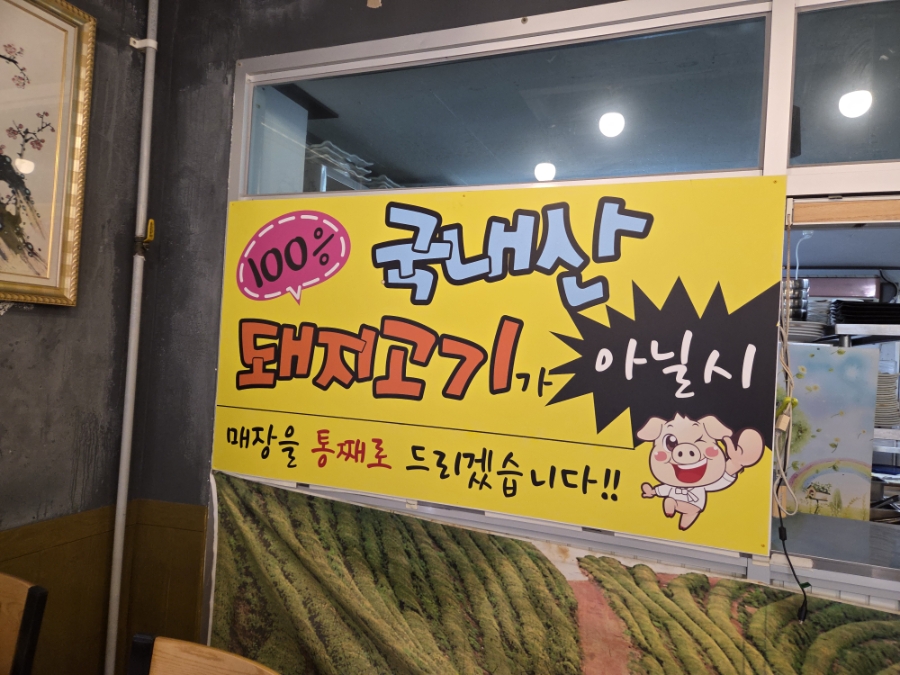 100% 국내산
돼지고기가 아닐시
매장을 통째로 드리겠습니다!!